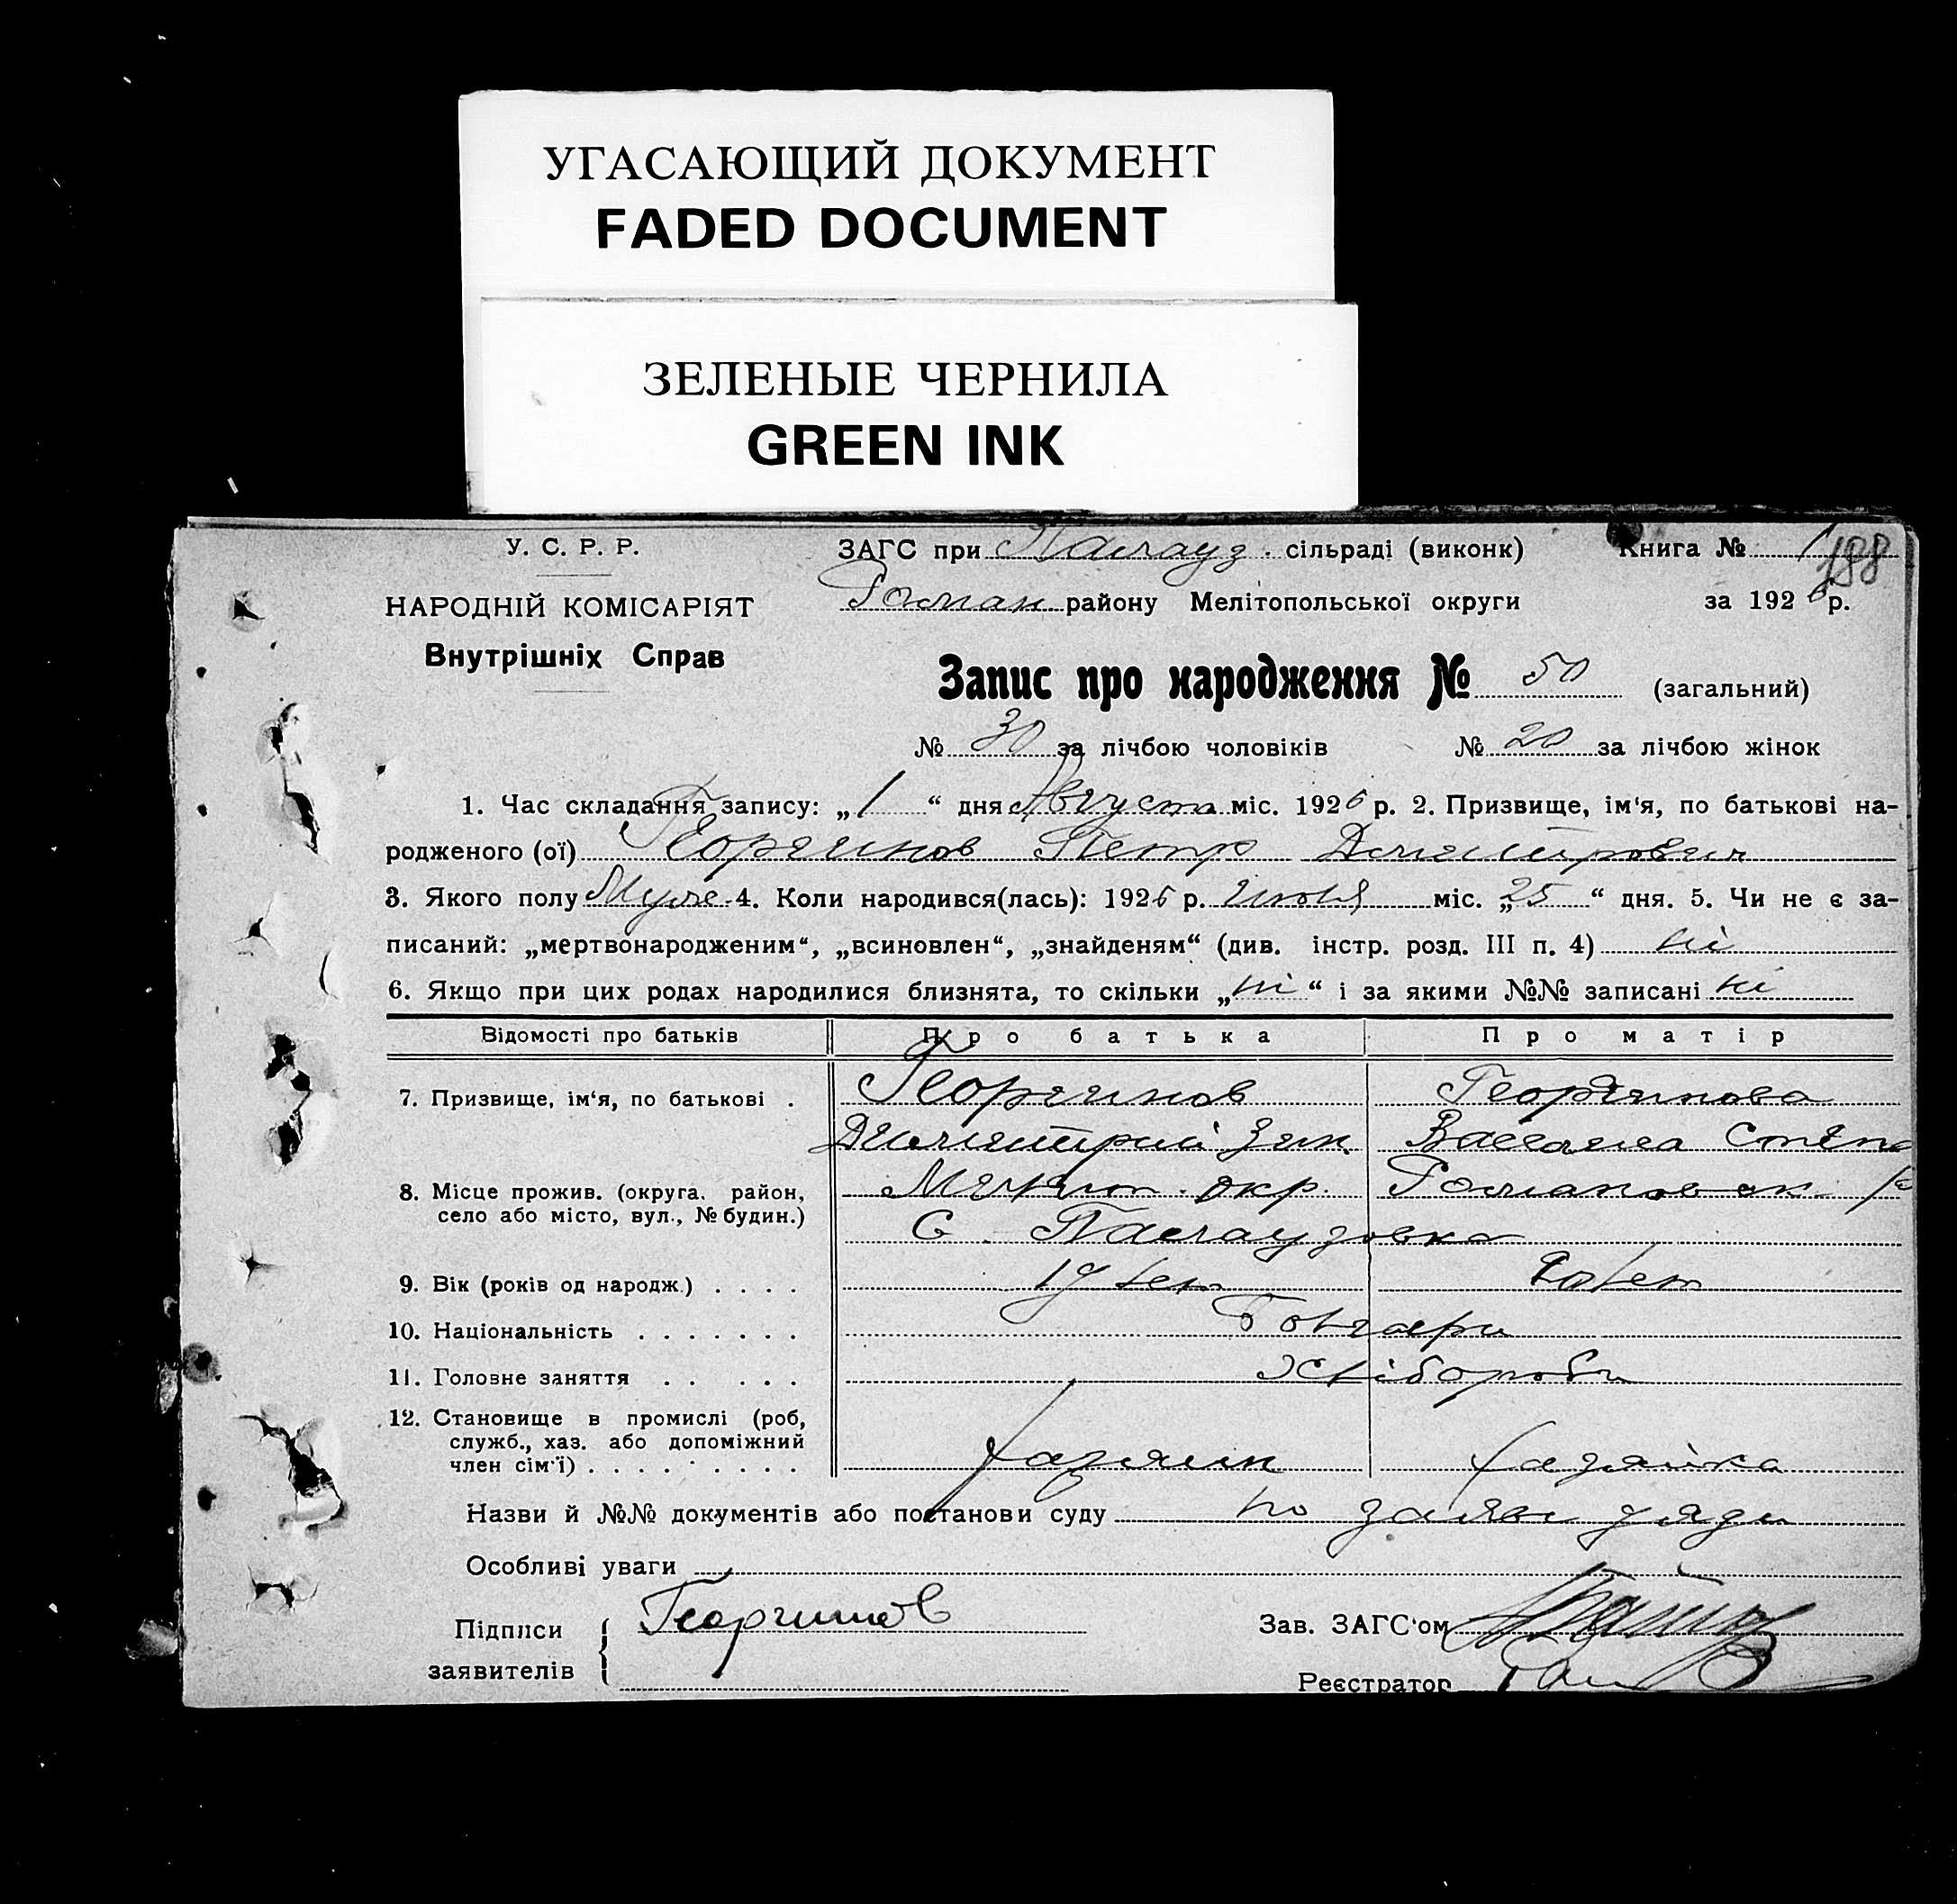 УГАСАЮЩИЙ ДОКУМЕНТ
FADED DOCUMENT
ЗЕЛЕНЫЕ ЧЕРНИЛА
GREEN INK
У. С. Р. Р.
НАРОДНІЙ КОМІСАРІЯТ
Внутрішніх Справ
ЗАГС при Паслауз. сільраді (виконк)
Роман району Мелітопольської округи
Книга № 1
188
за 1926 р.
Запис про народження № 50 (загальний)
№ 30 за лічбою чоловіків № 20 за лічбою жінок
1. Час складання запису: „1“ дня Августа міс. 1926 р. 2. Призвище, ім‘я, по батькові на-
родженого (ої) Георгинов Петр Дмитрович
3. Якого полу Муже 4. Коли народився(лась): 1926 р. Июля міс. „25“ дня. 5. Чи не є за-
писаний: „мертвонародженим“, „всиновлен“, „знайденям“ (див. інстр. розд. III п. 4) ні
6. Якщо при цих родах народилися близнята, то скільки „ні“ і за якими №№ записані ні
Відомості про батьків Про батька Про матір
7. Призвище, ім‘я, по батькові . Георгинов Георгинова
Димитрий Васелиса Степа
8. Місце прожив. (округа, район, село або місто, вул., № будин.) окр. Романовск
С
9. Вік (років од народж.) . . . . 19 лет 20 лет
10. Національність . . . . . . . Болгари
11. Головне заняття . . . . . Хліборобы
12. Становище в промислі (роб, служб., хаз. або допоміжний член сім‘ї) . . . . . . . . . хазяин хазяйка
Назви й №№ документів або постанови суду по заяві
Особливі уваги
Підписи заявителів Георгинов
Зав. ЗАГС‘ом
Реєстратор